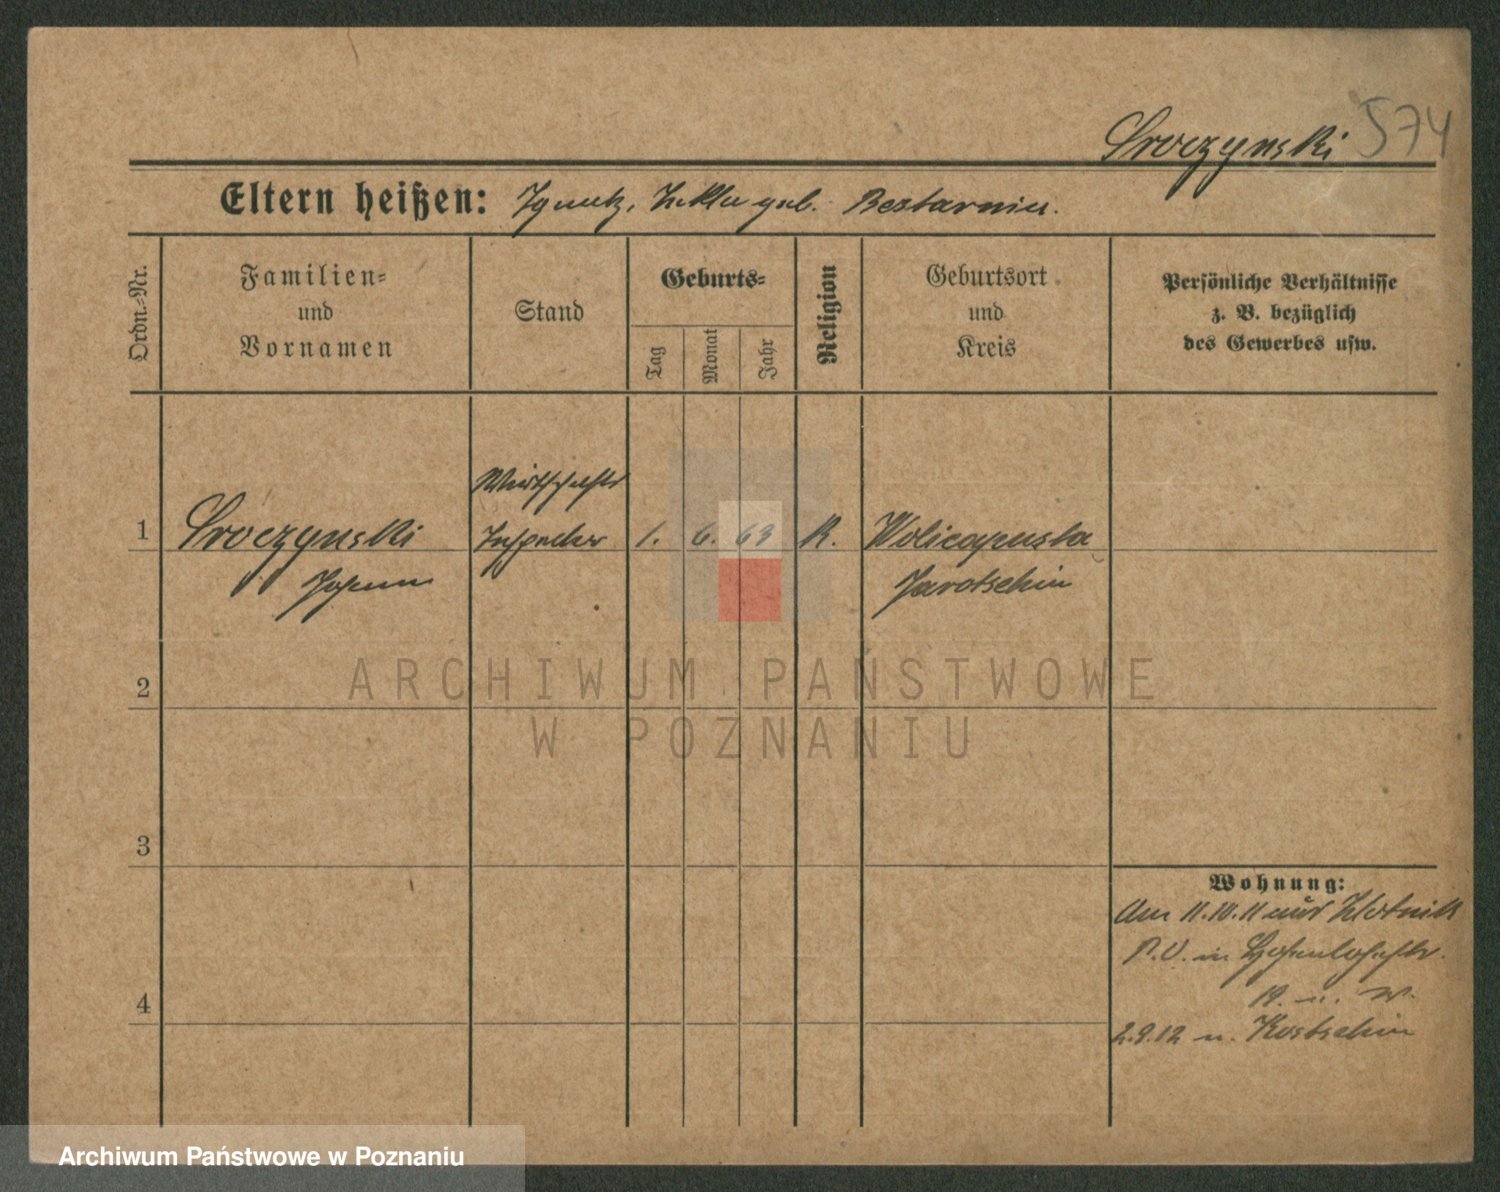 Sroczynski 574
Eltern heißen: Ignatz, Thekla geb. Beztarnia.
Ordn.-Nr.
Familien-
und
Vornamen
Stand
Geburts-
Tag
Monat
Jahr
Religion
Geburtsort
und
Kreis
Persönliche Verhältnisse
z. B. bezüglich
des Gewerbes usw.
Wirthschafts
1 Sroczynski Inspector 1. 6. 63 K. Wolicapusta
Johann Jarotschin
2
ARCHIWUM PAŃSTWOWE
W POZNANIU
3
Wohnung:
Am 11.10.11 aus Zlotnik
P.O. in Hohenlohestr.
19.
4
2.9.12 n. Kostschin
Archiwum Państwowe w Poznaniu